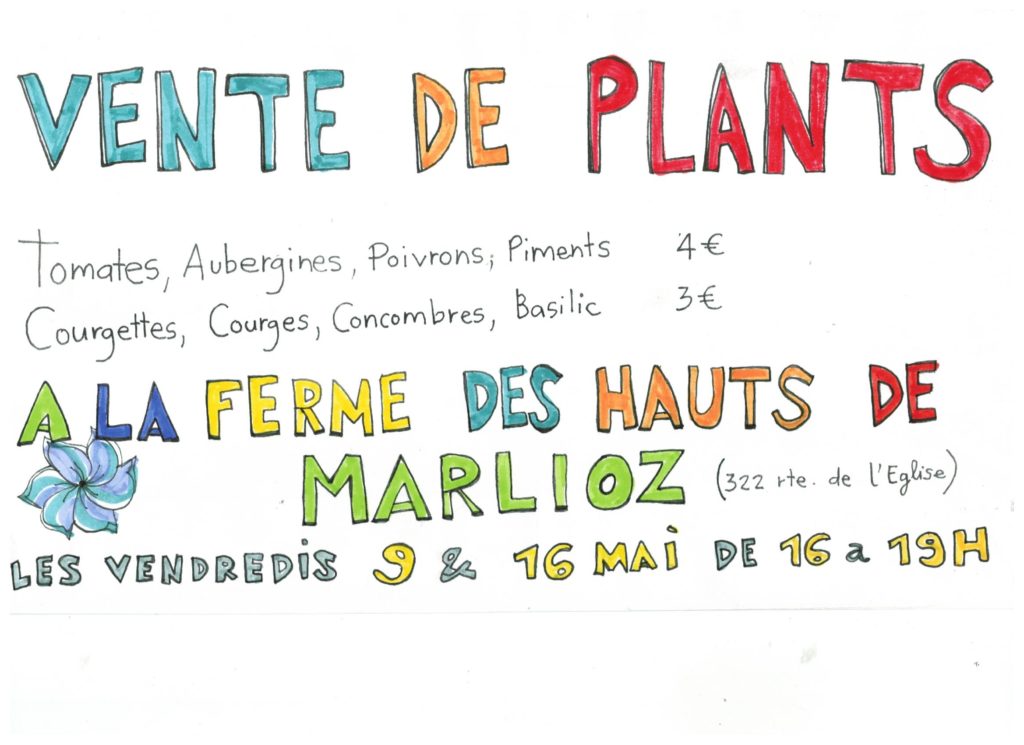 VENTE DE PLANTS
Tomates, Aubergines, Poivrons, Piments 4€
Courgettes, Courges, Concombres, Basilic 3€
A LA FERME DES HAUTS DE
MARLIOZ (322 rte. de l'Eglise)
LES VENDREDIS 9 & 16 MAI DE 16 a 19H